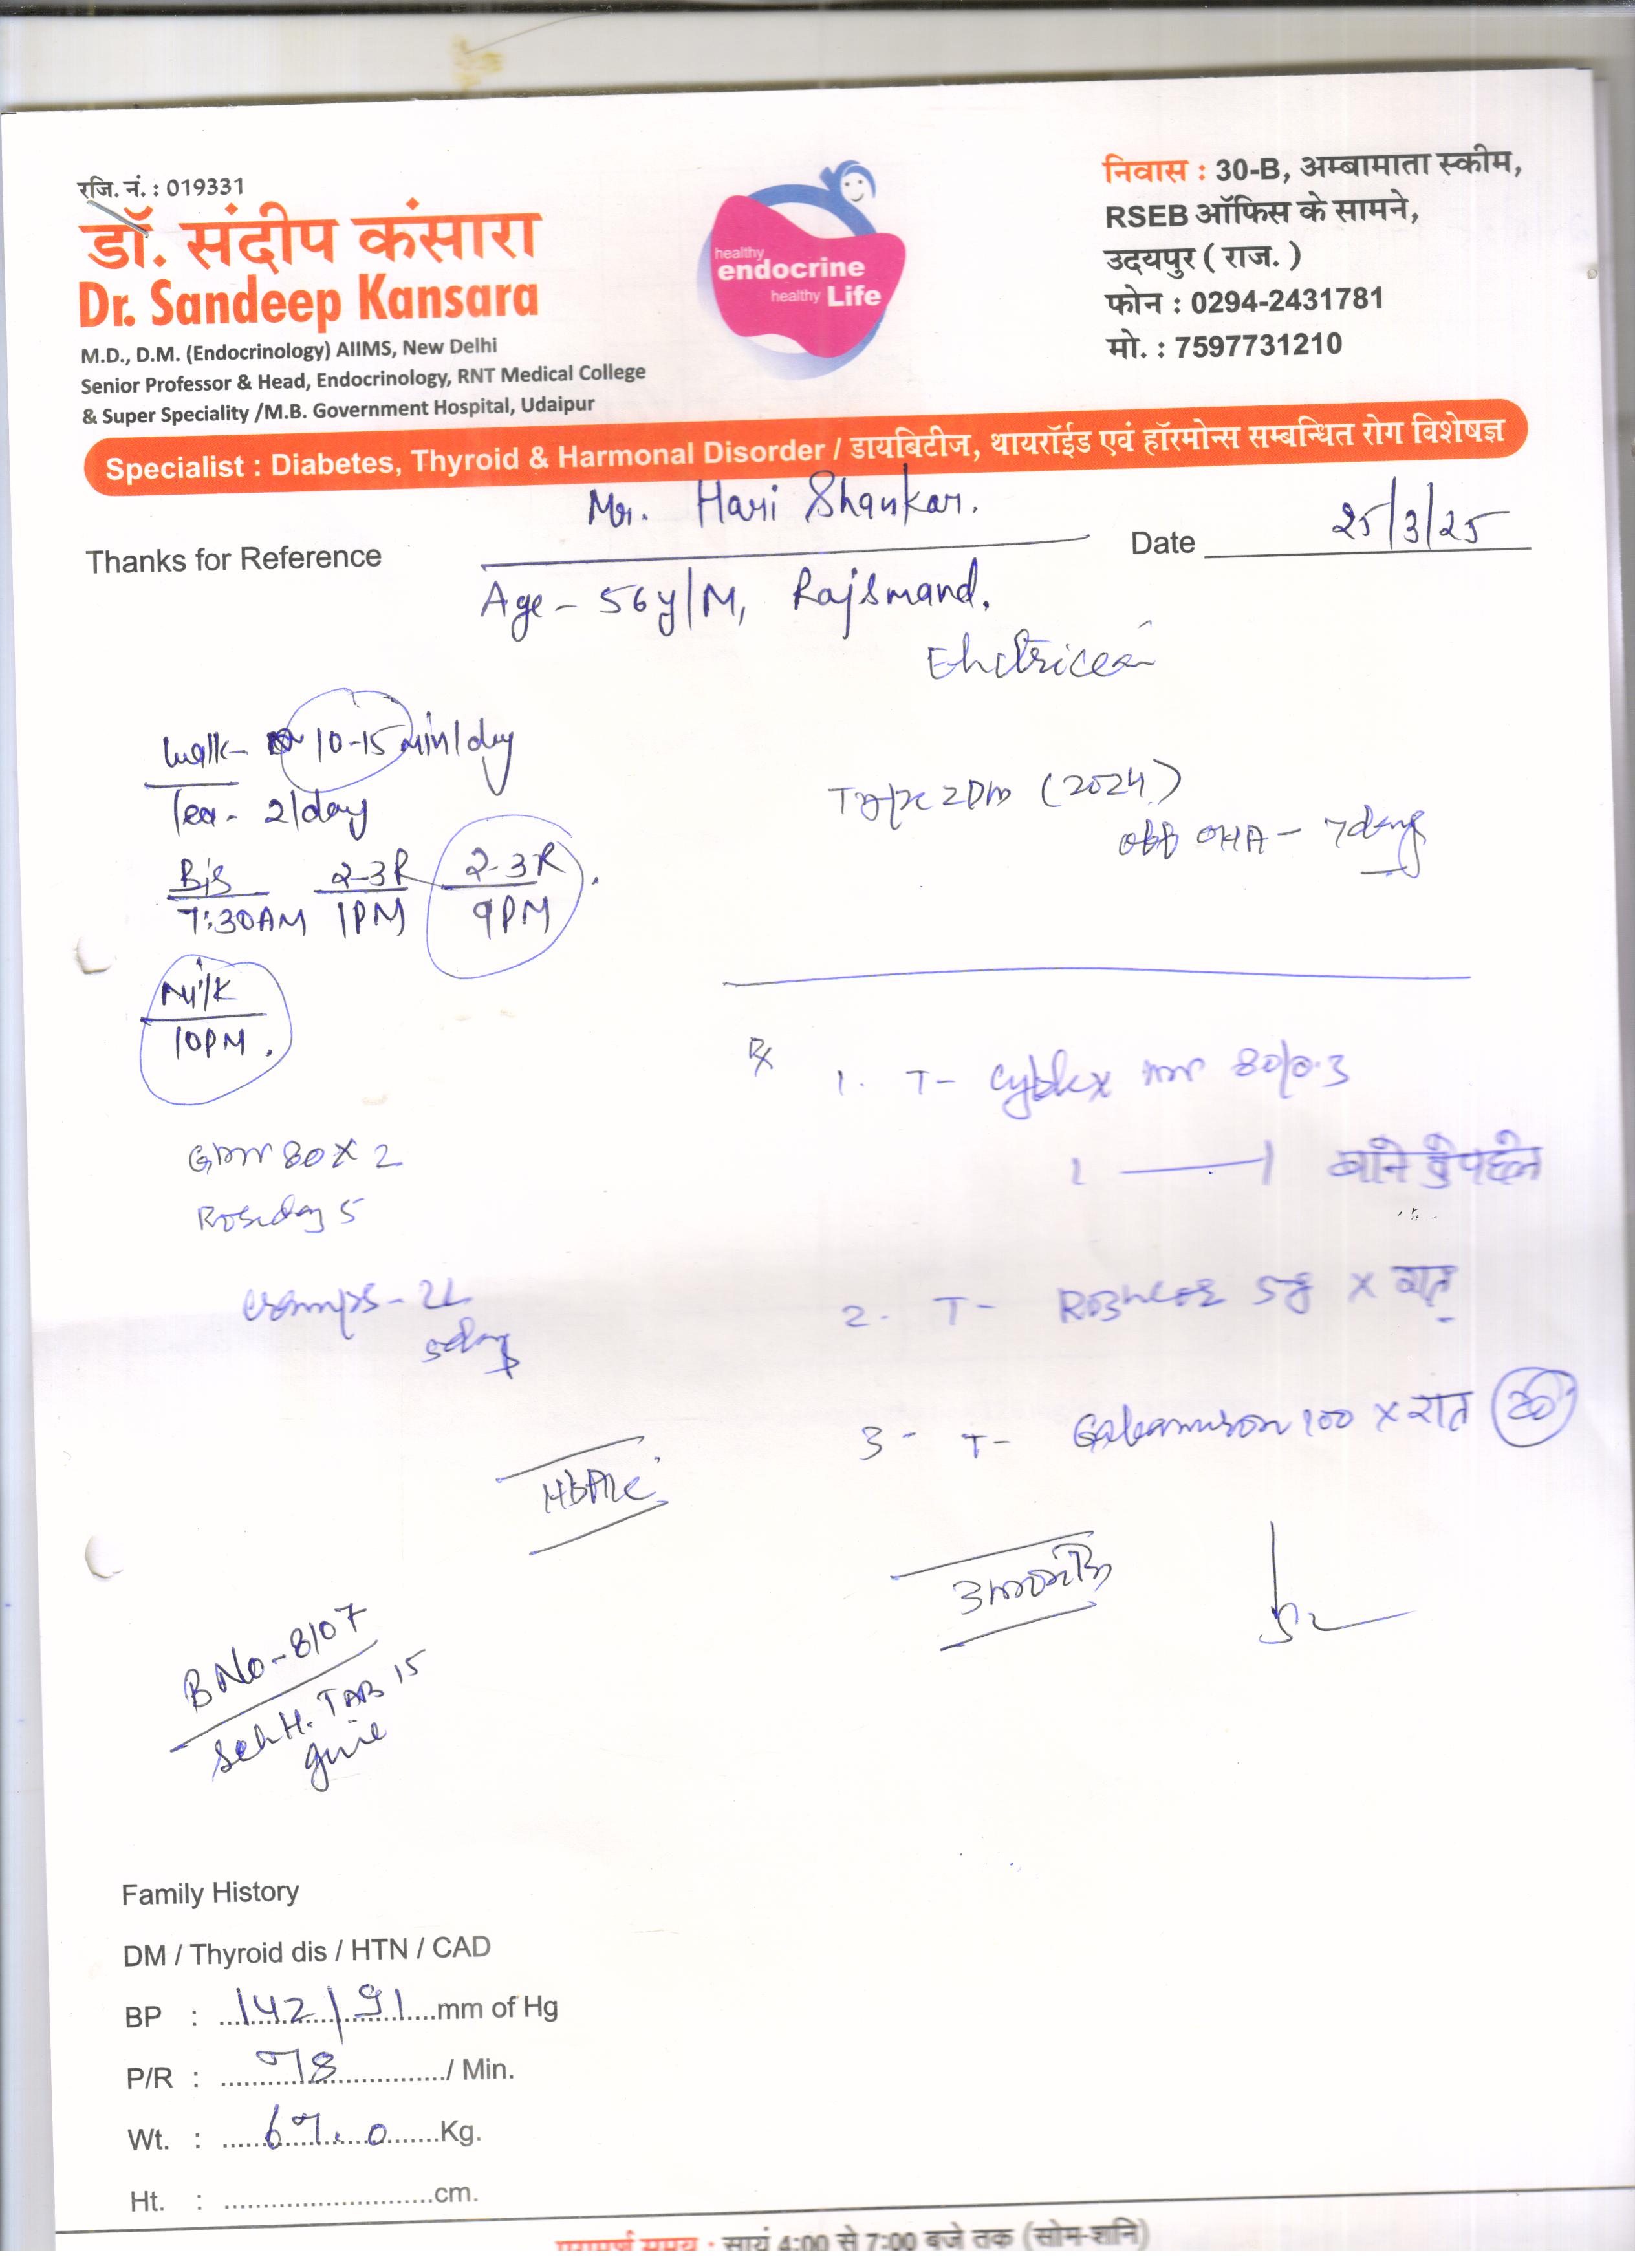 रजि. नं. : 019331
डॉ. संदीप कंसारा
Dr. Sandeep Kansara
M.D., D.M. (Endocrinology) AIIMS, New Delhi
Senior Professor & Head, Endocrinology, RNT Medical College
& Super Speciality /M.B. Government Hospital, Udaipur
healthy
endocrine
healthy Life
निवास : 30-B, अम्बामाता स्कीम,
RSEB ऑफिस के सामने,
उदयपुर ( राज. )
फोन : 0294-2431781
मो. : 7597731210
Specialist : Diabetes, Thyroid & Harmonal Disorder / डायबिटीज, थायरॉईड एवं हॉरमोन्स सम्बन्धित रोग विशेषज्ञ
Mr. Hari Shankar.
Thanks for Reference
Date 25/3/25
Age - 56y/M, Rajsmand.
Walk - 10-15 min/day
Tea - 2/day
Bis 2-3R 2-3R.
7:30AM 1PM 9PM
Milk
10PM.
Type 2DM (2024)
off OHA - 7days
80 x 2
Roseday 5
cramps -
5day
HbA1c
Rx
1. T- Cyblex mr 80/0.3
1 — 1 खाने से पहले
2. T- 5 x रात
3 - T- 100 x रात
3 month
B No - 8107
TAB 15
give
Family History
DM / Thyroid dis / HTN / CAD
BP : 142/91 mm of Hg
P/R : 78 / Min.
Wt. : 67.0 Kg.
Ht. : cm.
परामर्श समय : सायं 4:00 से 7:00 बजे तक (सोम-शनि)